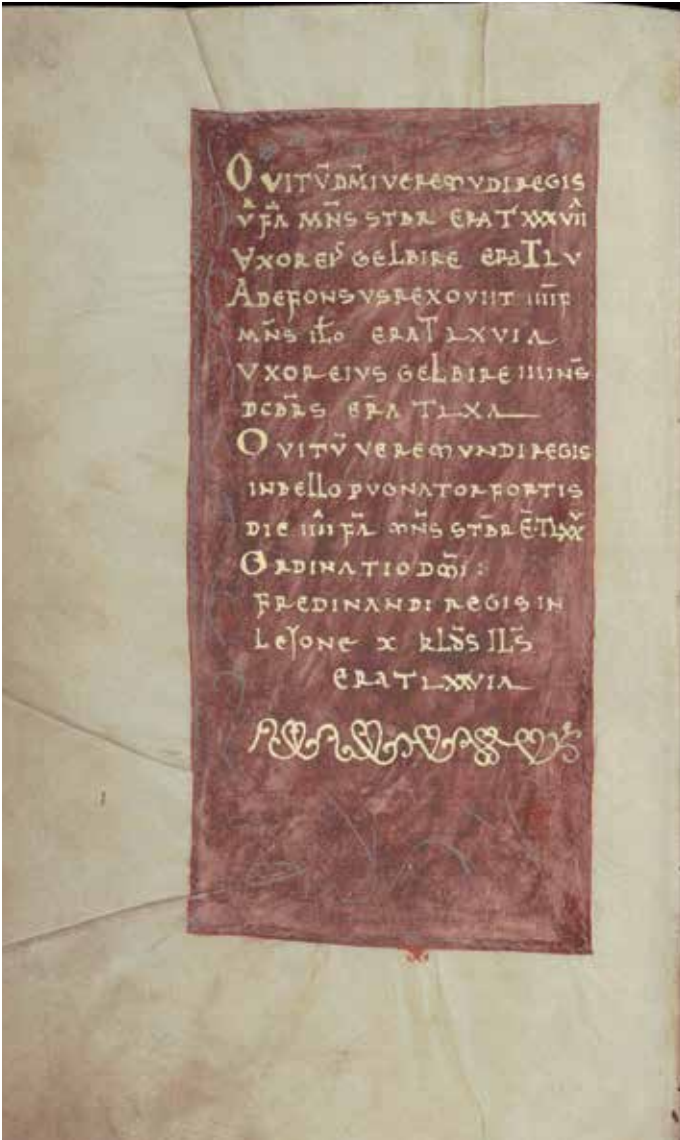 OVITV̄ DM̄I VEREMVDI REGIS
V FA͞ MN͞S STBR ERA T XXXVII
VXOR EIS GELBIRE ERA T L V
ADEFONSVS REX OVIIT IIII F
MN͞S ERA T LXVIA
VXOR EIVS GELBIRE IIII NS̄
DCBR͞S ER͞A T LXA
OVITV̄ VEREMVNDI REGIS
IN BELLO PVGNATOR FORTIS
DIE IIII FA͞ MN͞S STB͞R E͞ T LXX V
ORDINATIO DM̄I :
FREDINANDI REGIS IN
LEJONE X KLD͞S IL͞S
ERA T LXXVIA